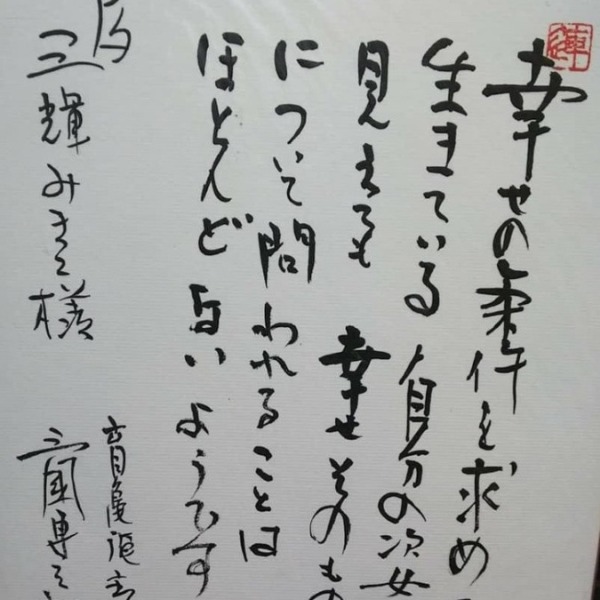 幸せの条件を求め
生きている自分の姿
見えても幸せそのもの
について問われることは
ほとんどないようです
為
三輝みき様